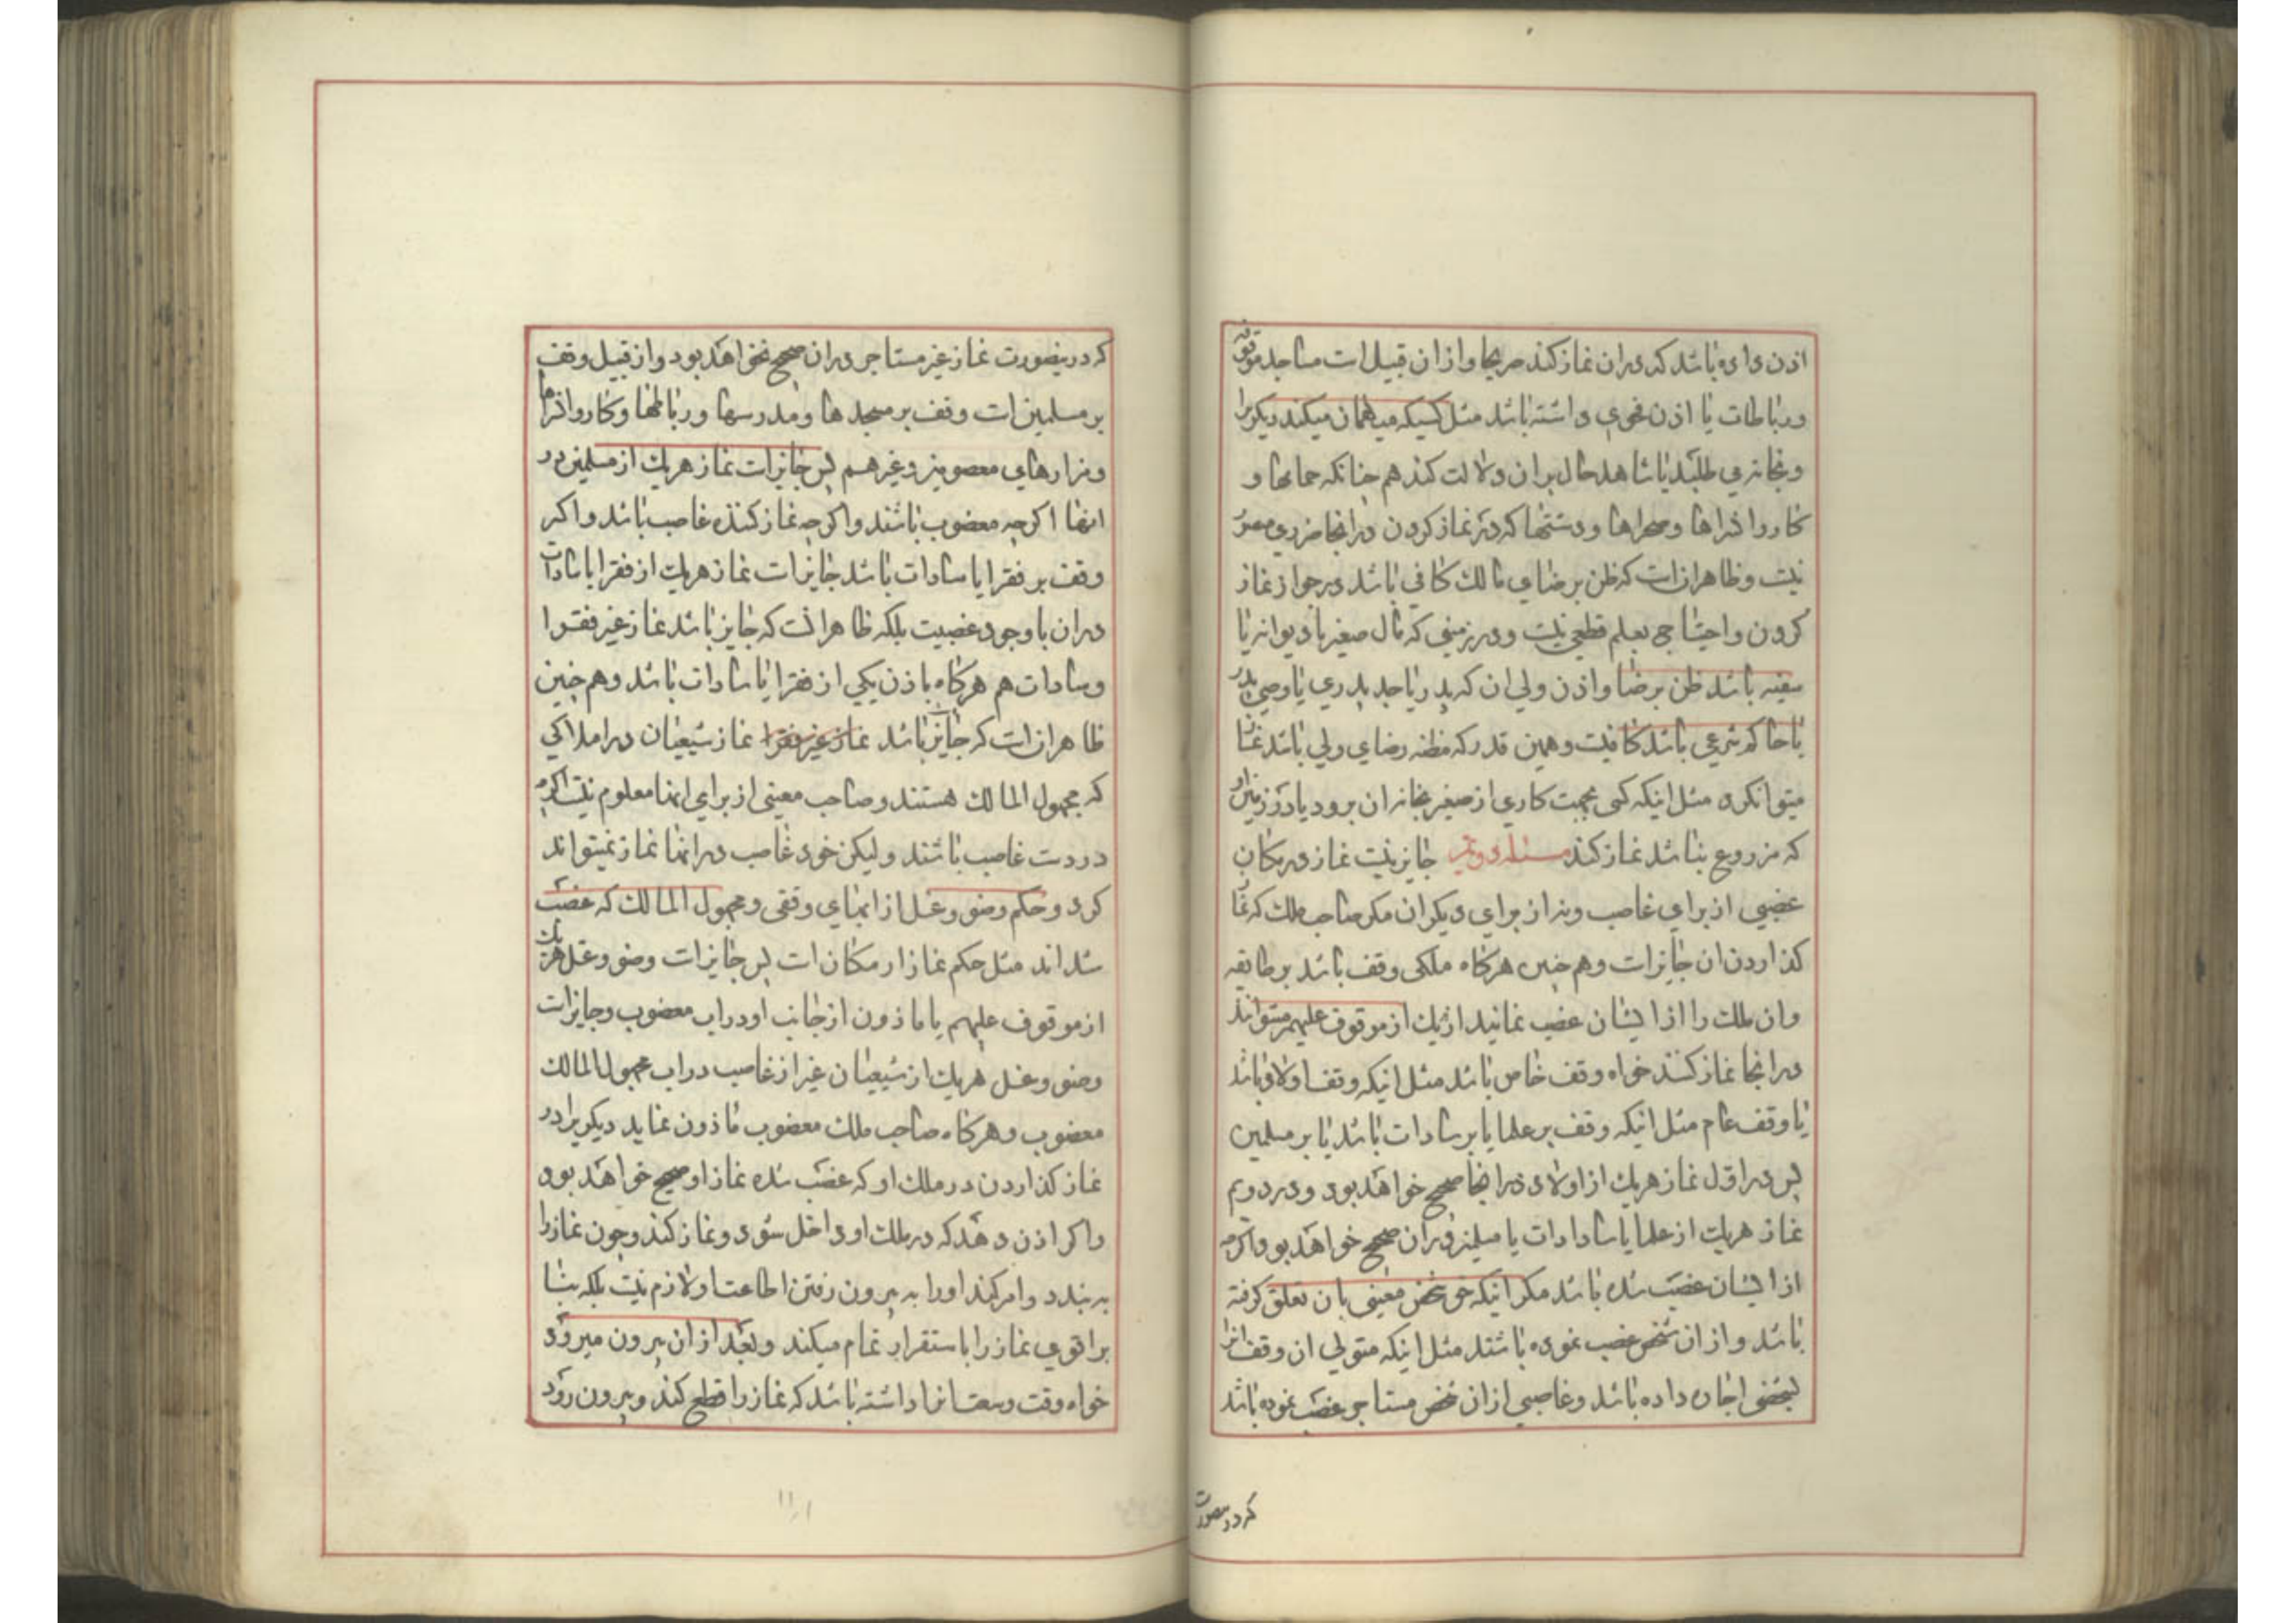 اذن داده باشد که در آن نماز کند صریحا و از ان قبیل است مساجد موقوفه
و رباطات یا اذن فحوی داشته باشد مثل کسیکه میهمان میکند دیگریرا
و بخانه می طلبد یا شاهد حال بر ان دلالت کند هم چنانکه حمامها و
کاروانسراها و صحراها و دشتها که در نماز کردن در انجا ضرری متصور
نیست و ظاهر انست که ظن برضای مالک کافی باشد در جواز نماز
کردن و احتیاجی بعلم قطعی نیست و در زمینی که مال صغیر یا دیوانه یا
سفیه باشد ظن برضا و اذن ولی ان که پدر یا جد پدری یا وصی پدر
یا حاکم شرعی باشد کافیست و همین قدر که مظنه رضای ولی باشد نماز
میتوانکرد مثل اینکه کسی بجهت کاری از صغیر بخانه ان برود یا در زمین او
که مزروع نباشد نماز کند مسئله دویم جایز نیست نماز در مکان
غصبی از برای غاصب و نه از برای دیگران مگر صاحب ملک که نماز
گذاردن ان جایز است و هم چنین هرگاه ملکی وقف باشد بر طایفه
و ان ملک را از ایشان غصب نمایند هر یک از موقوف علیهم میتوانند
در انجا نماز کنند خواه وقف خاص باشد مثل اینکه وقف اولاد باشد
یا وقف عام مثل اینکه وقف بر علما یا بر سادات باشد یا بر مسلمین
پس در اول نماز هریک از اولاد در انجا صحیح خواهد بود و در دویم
نماز هریک از علما یا سادادات یا مسلمین در ان صحیح خواهد بود اگرچه
از ایشان غصب شده باشد مگر اینکه حق شخص معینی بان تعلق گرفته
باشد و از ان شخص غصب نموده باشند مثل اینکه متولی ان وقف انرا
بشخصی اجاره داده باشد و غاصبی از ان شخص مستاجر غصب نموده باشد
که در ینصورت
که در ینصورت نماز غیر مستاجر در ان صحیح نخواهد بود و از قبیل وقف
بر مسلمین است وقف بر مسجد ها و مدرسها و رباطها و کاروانسراها
و مزارهای معصومین و غیر هم پس جایز است نماز هریک از مسلمین در
انها اگرچه مغصوب باشند و اگرچه نماز کننده غاصب باشد و اگر
وقف بر فقرا یا سادات باشد جایز است نماز هریک از فقرا یا سادات
در ان با وجود غصبیت بلکه ظاهر انست که جایز باشد نماز غیر فقرا
و سادات هم هرگاه باذن یکی از فقرا یا سادات باشد و هم چنین
ظاهر انست که جایز باشد نماز غیر فقرا نماز شیعیان در املاکی
که مجهول المالک هستند و صاحب معینی از برای انها معلوم نیست اگرچه
در دست غاصب باشند و لیکن خود غاصب در انها نماز نمیتواند
کرد و حکم وضو و غسل از ابهای وقفی و مجهول المالک که غصب
شده اند مثل حکم نماز از مکان است پس جایز است وضو و غسل هر یک
از موقوف علیهم یا ماذون از جانب او در اب مغصوب و جایز است
وضو و غسل هریک از شیعیان غیر از غاصب در اب مجهول المالک
مغصوب و هرگاه صاحب ملک مغصوب ماذون نماید دیگریرا در
نماز گذاردن در ملک او که غصب شده نماز او صحیح خواهد بود
و اگر اذن دهد که در ملک او داخل شود و نماز کند و چون نماز را
به بندد و امر کند او را به بیرون رفتن اطاعت او لازم نیست بلکه بنا
بر اقوی نماز را با ستقرار تمام میکند و بعد از ان بیرون میرود
خواه وقت وسعت انرا داشته باشد که نماز را قطع کند و بیرون رود